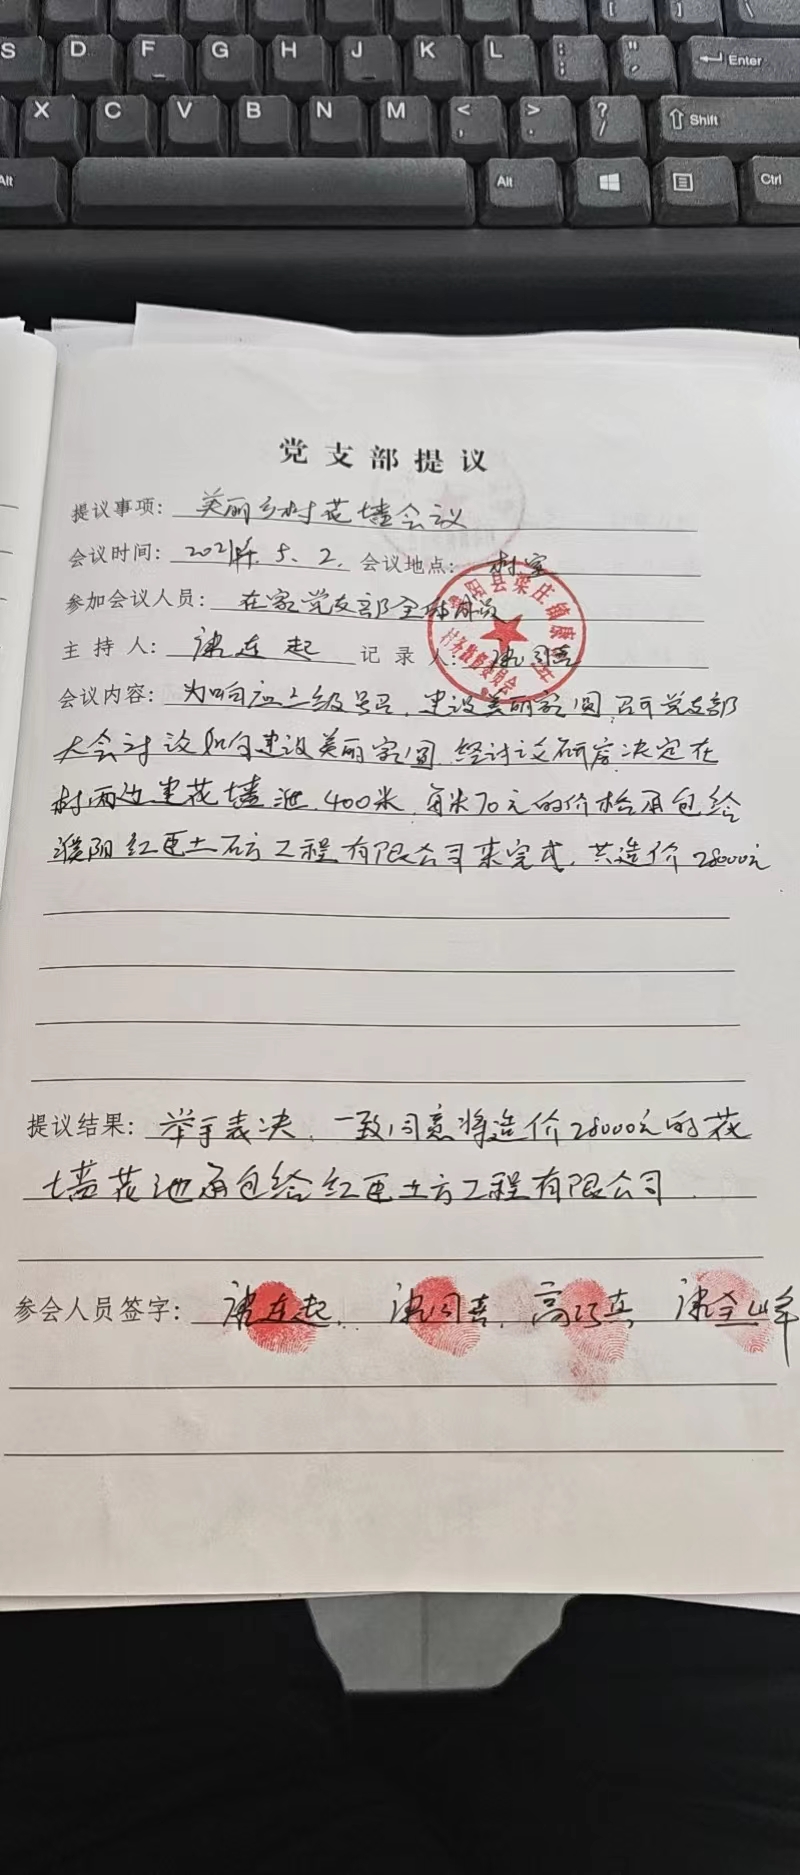 S D F G H J K L : ; " ' Enter
X C V B N M < , > . ? / Shift
Alt Alt Ctrl
党支部提议
提议事项: 美丽乡村花墙会议
会议时间: 2021年.5.2. 会议地点: 村室
参加会议人员: 在家党支部全体
主持人: 连起 记录人:
会议内容: 为响应上级号召,建设美丽家园,召开党支部
大会讨议如何建设美丽家园,经讨议研究决定在
村两边建花墙池,400米,每米70元的价格承包给
濮阳红 土石方工程有限公司来完成,共造价28000元
提议结果: 举手表决,一致同意将造价28000元的花
墙花池承包给红 土方工程有限公司.
参会人员签字: 连起. 同喜. 高巧真. 全峰
县梁庄镇
村务监督委员会